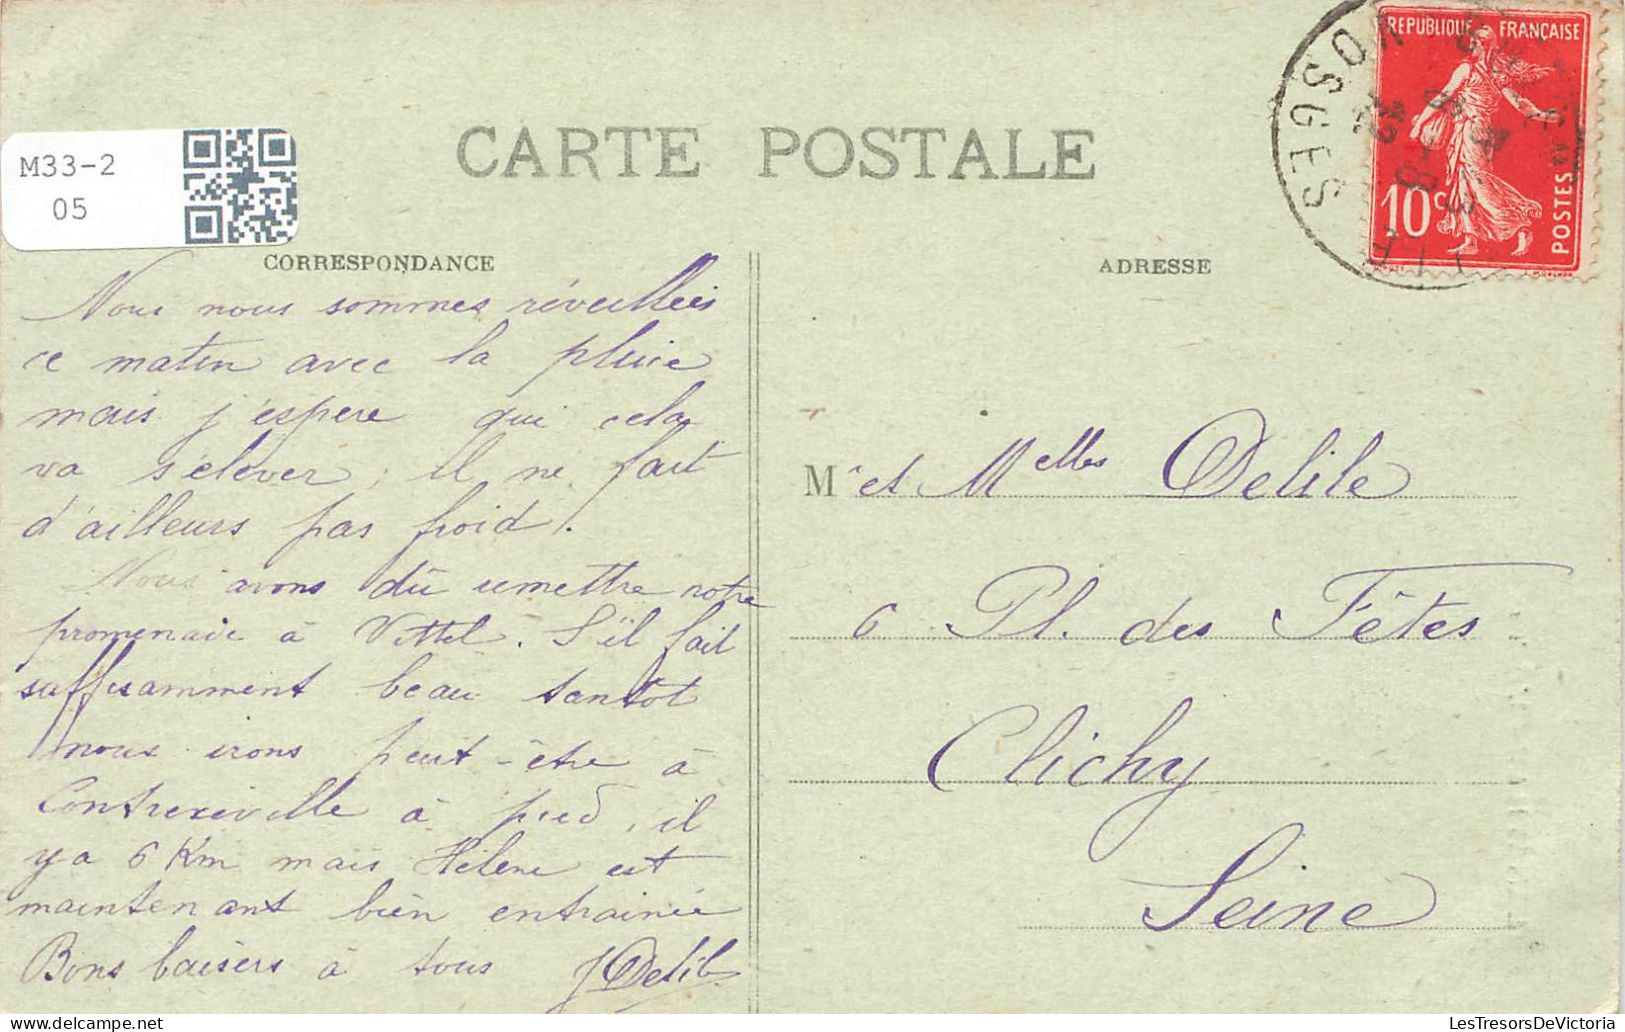 CARTE POSTALE
M33-2
05
CORRESPONDANCE
Nous nous sommes réveillées
ce matin avec la pluie
mais j'espere que cela
va s'elever, il ne fait
d'ailleurs pas froid.
Nous avons dû remettre notre
promenade à Vittel. S'il fait
suffisamment beau tantôt
nous irons peut-être à
Contrexeville à pied, il
y a 6 Km mais Hélène est
maintenant bien entrainée
Bons baisers à tous J Delile
ADRESSE
M et Melles Delile
6 Pl. des Fêtes
Clichy
Seine
REPUBLIQUE FRANÇAISE
10c
POSTES
MOUCHON
VOSGES
LesTresorsDeVictoria